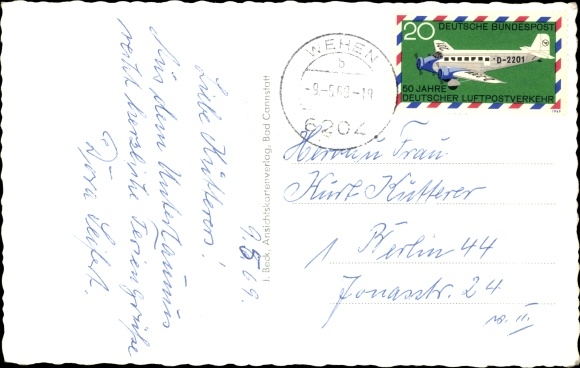 9.5.69.
Liebe Kutterers!
Aus dem Untertaunus
recht herzliche Feriengrüße
Dora Seifert.
I. Beck, Ansichtskartenverlag, Bad Cannstatt
WEHEN
b
-9-5.69-18
6204
20 DEUTSCHE BUNDESPOST
D-2201
50 JAHRE
DEUTSCHER LUFTPOSTVERKEHR
1969
Herrn u Frau
Kurt Kutterer
1 Berlin 44
Jonasstr. 24